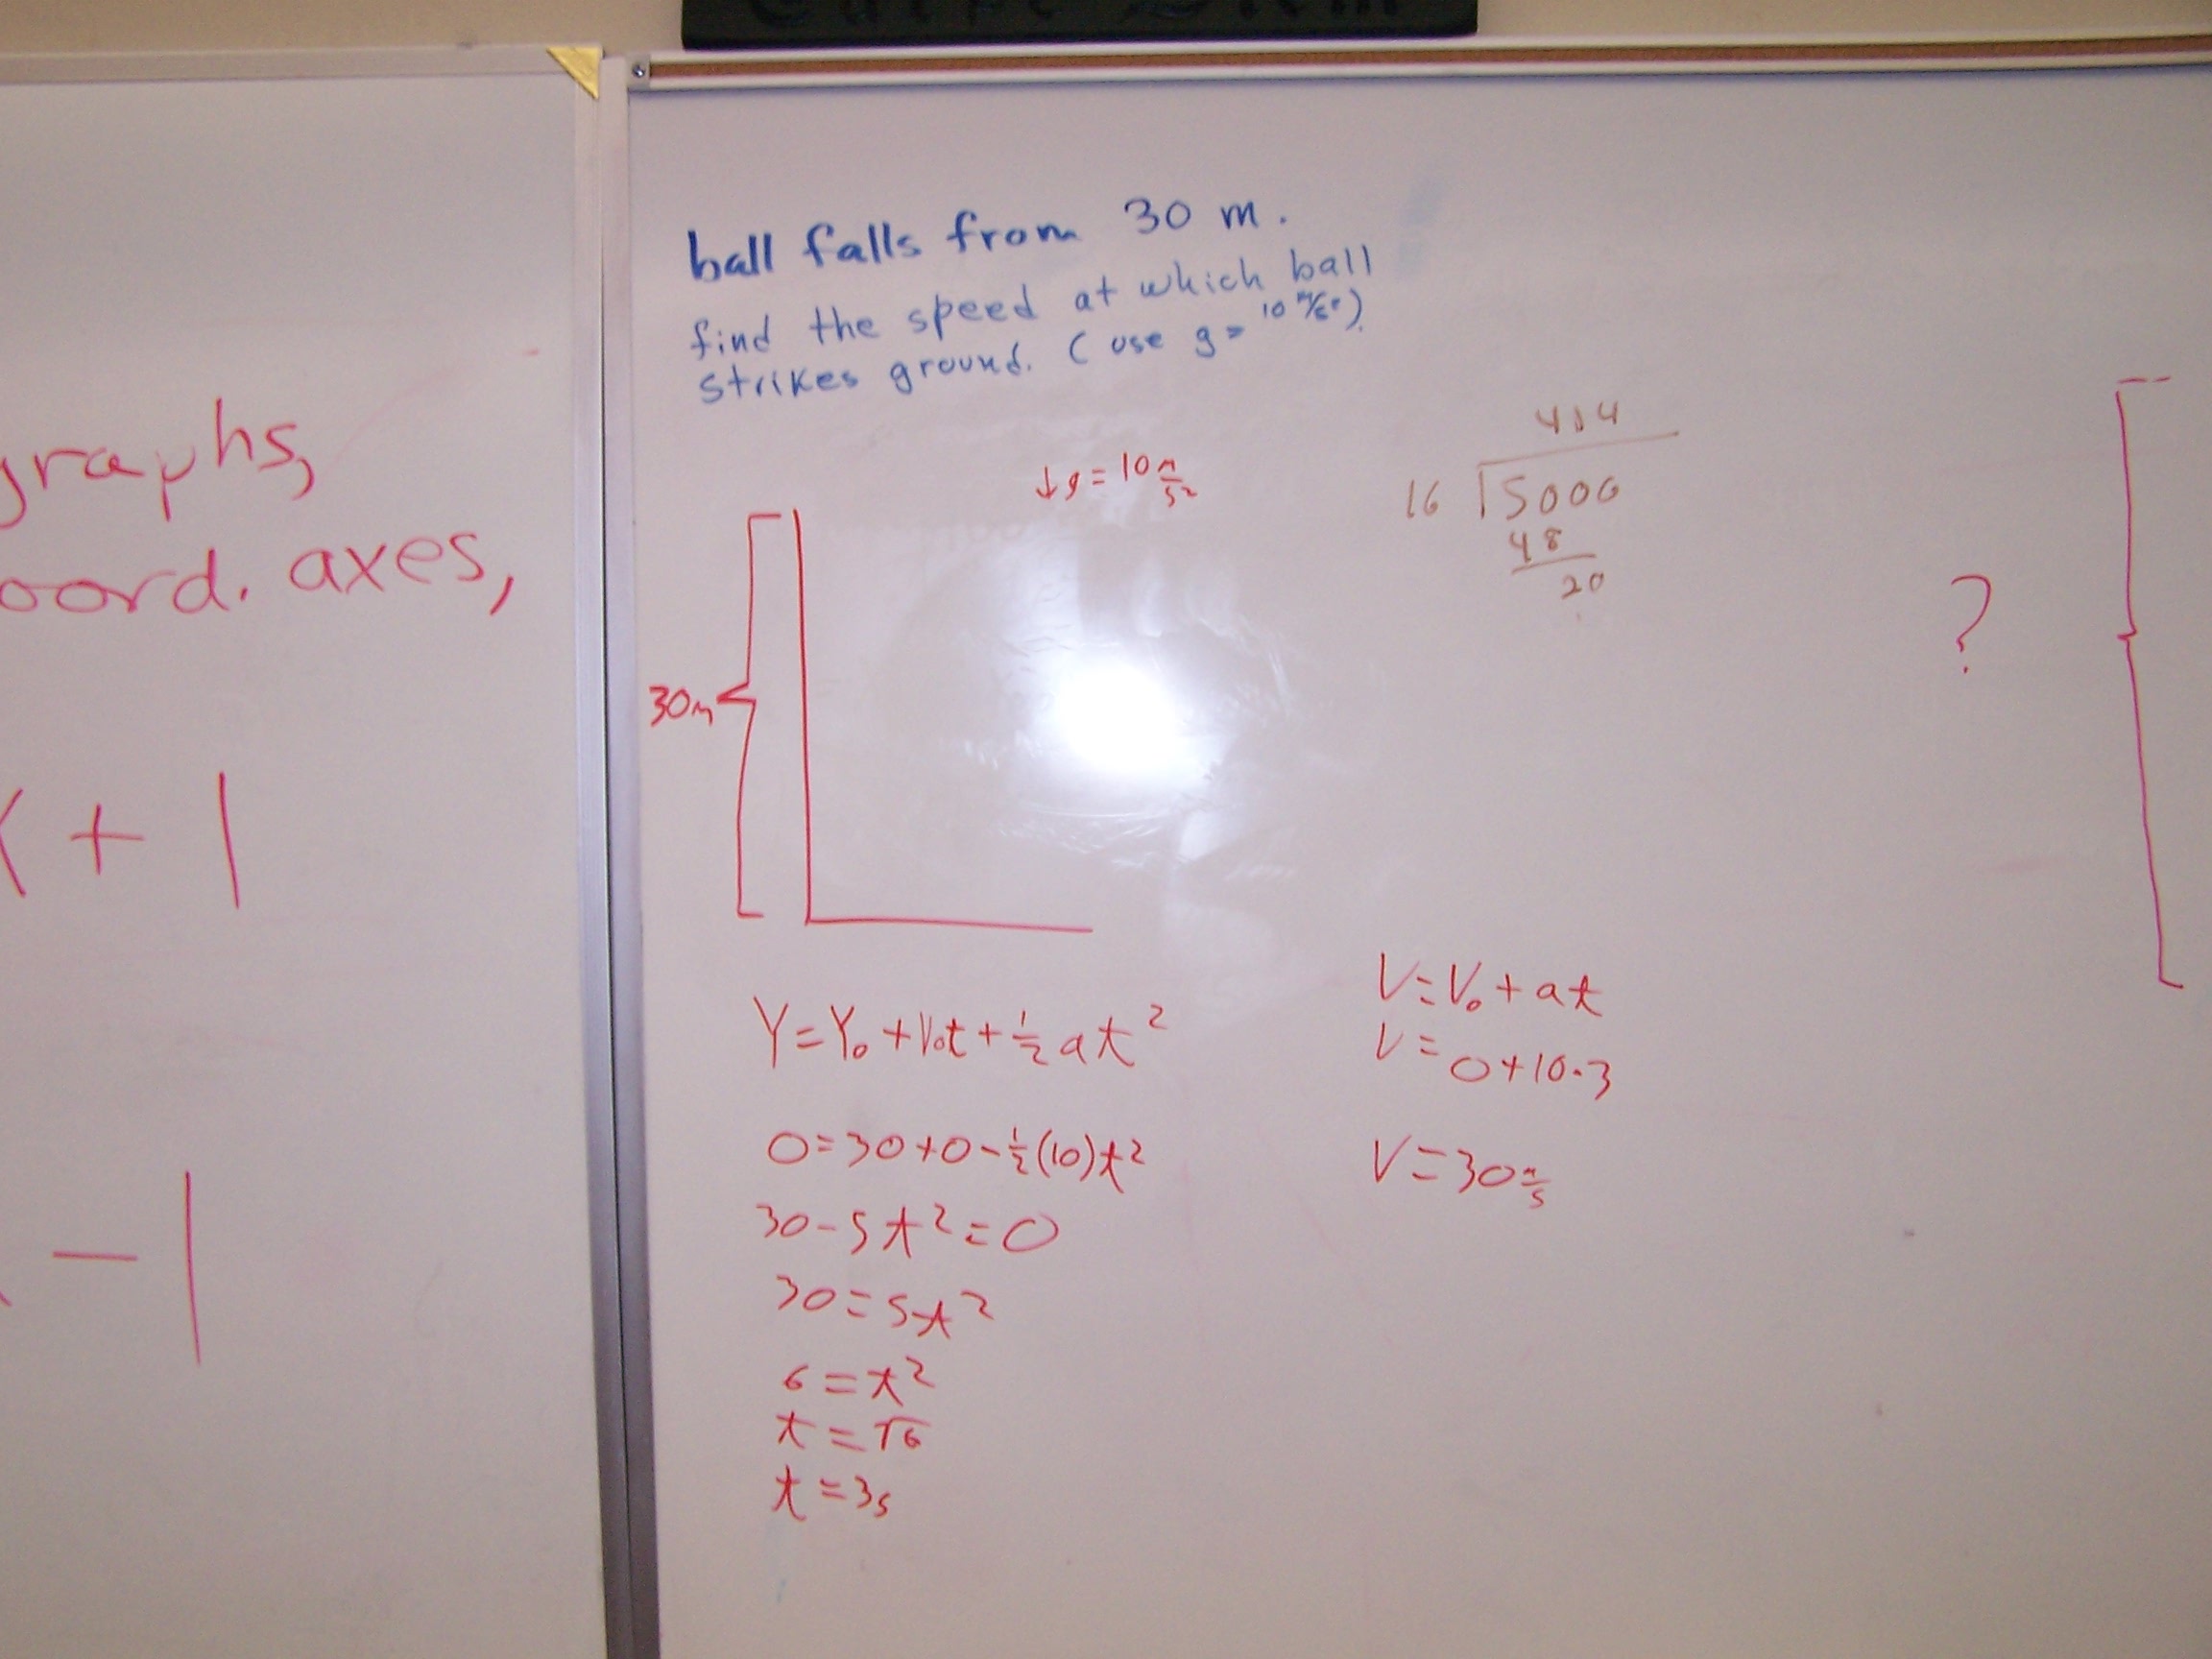 Carpe Diem
graphs,
oord. axes,
x + 1
- 1
ball falls from 30 m.
find the speed at which ball
strikes ground. (use g = 10 m/s²)
↓ g = 10 m/s²
30m
16 ⟌5000
48
20
?
Y = Y₀ + V₀t + ½at²
0 = 30 + 0 - ½(10)t²
30 - 5t² = 0
30 = 5t²
6 = t²
t = √6
t = 3s
V = V₀ + at
V = 0 + 10·3
V = 30 m/s